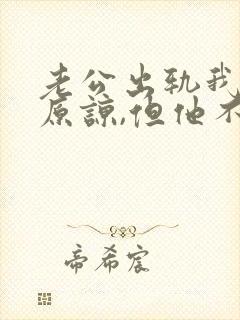 老公出轨我
原谅,但他不
帝希宸